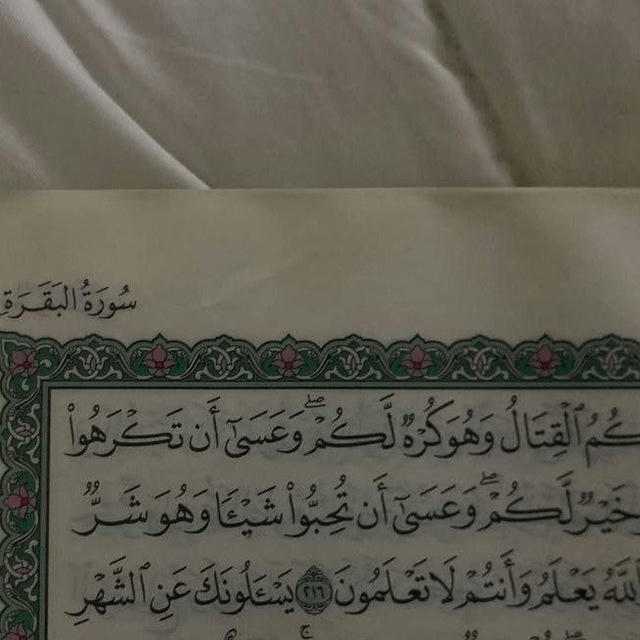 سُورَةُ البَقَرَةِ
كُمُ ٱلْقِتَالُ وَهُوَ كُرْهٌ لَّكُمْ ۖ وَعَسَىٰٓ أَن تَكْرَهُوا۟
خَيْرٌ لَّكُمْ ۖ وَعَسَىٰٓ أَن تُحِبُّوا۟ شَيْـًٔا وَهُوَ شَرٌّ
ٱللَّهُ يَعْلَمُ وَأَنتُمْ لَا تَعْلَمُونَ ٢١٦ يَسْـَٔلُونَكَ عَنِ ٱلشَّهْرِ